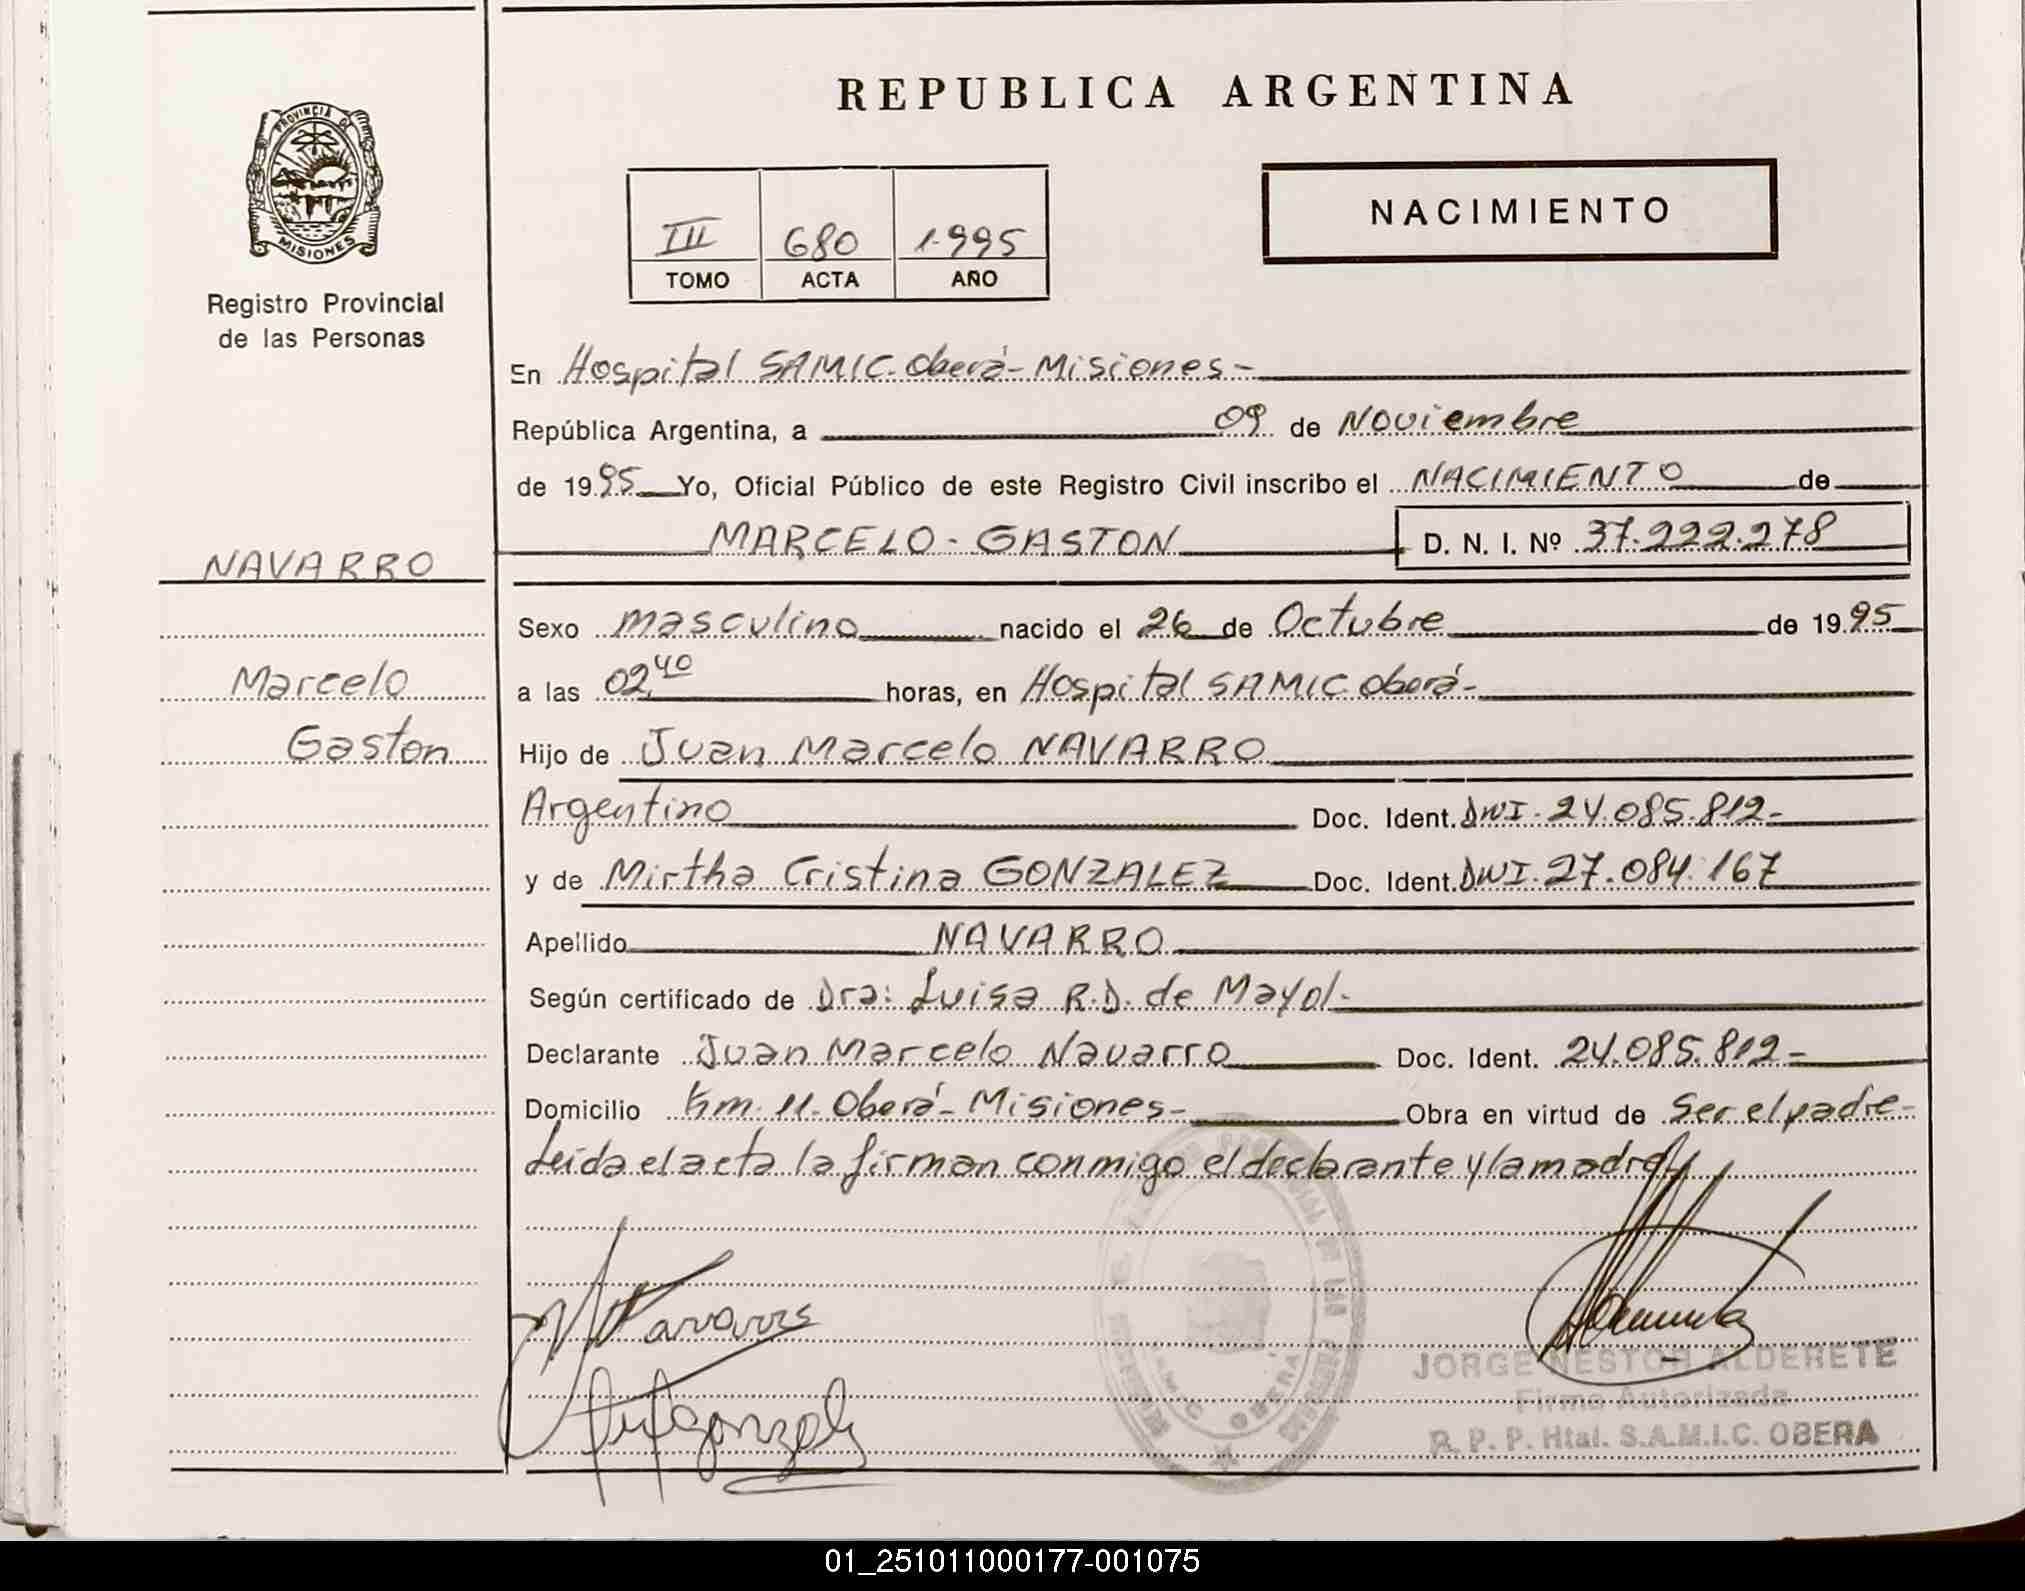 REPUBLICA ARGENTINA
PROVINCIA DE
MISIONES
Registro Provincial
de las Personas
III 680 1.995
TOMO ACTA AÑO
NACIMIENTO
En Hospital SAMIC-Oberá-Misiones-
República Argentina, a 09 de Noviembre
de 1995 Yo, Oficial Público de este Registro Civil inscribo el NACIMIENTO de
MARCELO-GASTON D. N. I. Nº 37.222.278
NAVARRO
Marcelo
Gaston
Sexo masculino nacido el 26 de Octubre de 1995
a las 02,40 horas, en Hospital SAMIC Oberá-
Hijo de Juan Marcelo NAVARRO
Argentino Doc. Ident. DNI-24.085.812-
y de Mirtha Cristina GONZALEZ Doc. Ident. DNI-27.084.167
Apellido NAVARRO
Según certificado de Dra: Luisa R.D. de Mayol-
Declarante Juan Marcelo Navarro Doc. Ident. 24.085.812-
Domicilio Km. 11-Oberá-Misiones- Obra en virtud de Ser el padre-
Leida el acta la firman conmigo el declarante y la madre
Navarro
Gonzalez
JORGE NESTOR ALDERETE
Firma Autorizada
R. P. P. Htal. S.A.M.I.C. OBERA
01_251011000177-001075